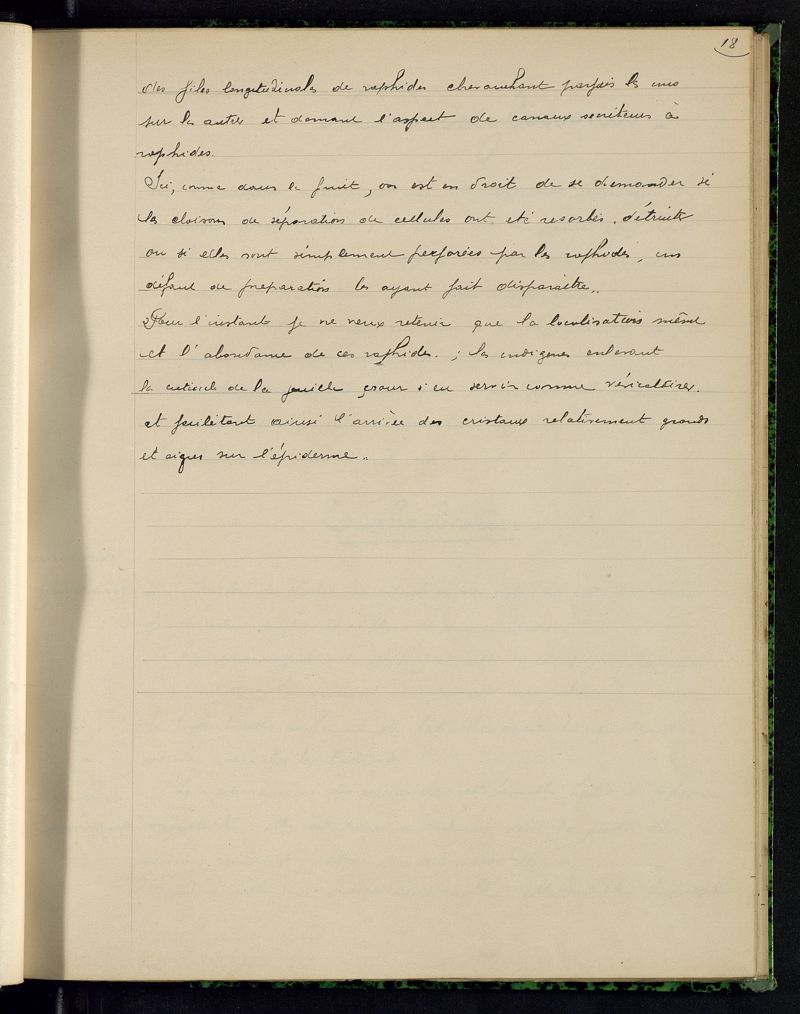 18
des files longitudinales de raphides chevauchant parfois les uns
sur les autres et donnant l'aspect de canaux secréteurs à
raphides.
Ici, comme dans le fruit, on est en droit de se demander si
les cloisons de séparation de cellules ont été resorbées, détruites
ou si elles sont simplement perforées par les raphides, un
défaut de préparation les ayant fait disparaître..
Pour l'instant je ne veux retenir que la localisation même
et l'abondance de ces raphides. ; les indigènes enlevant
la cuticule de la feuille pour s'en servir comme vésicatoires.
et facilitant ainsi l'arrivée des cristaux relativement grands
et aigus sur l'épiderme..